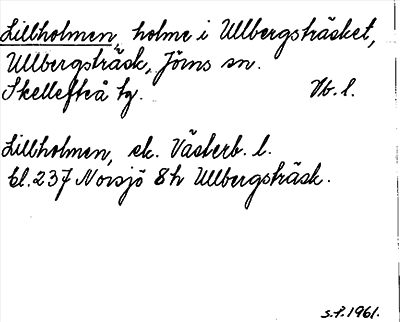 Lillholmen, holme i Ullbergsträsket,
Ullbergsträsk, Jörns sn.
Skellefteå tg. Vb. l.
Lillholmen, ek. Västerb. l.
bl. 237 Norsjö 8h Ullbergsträsk.
s.f. 1961.